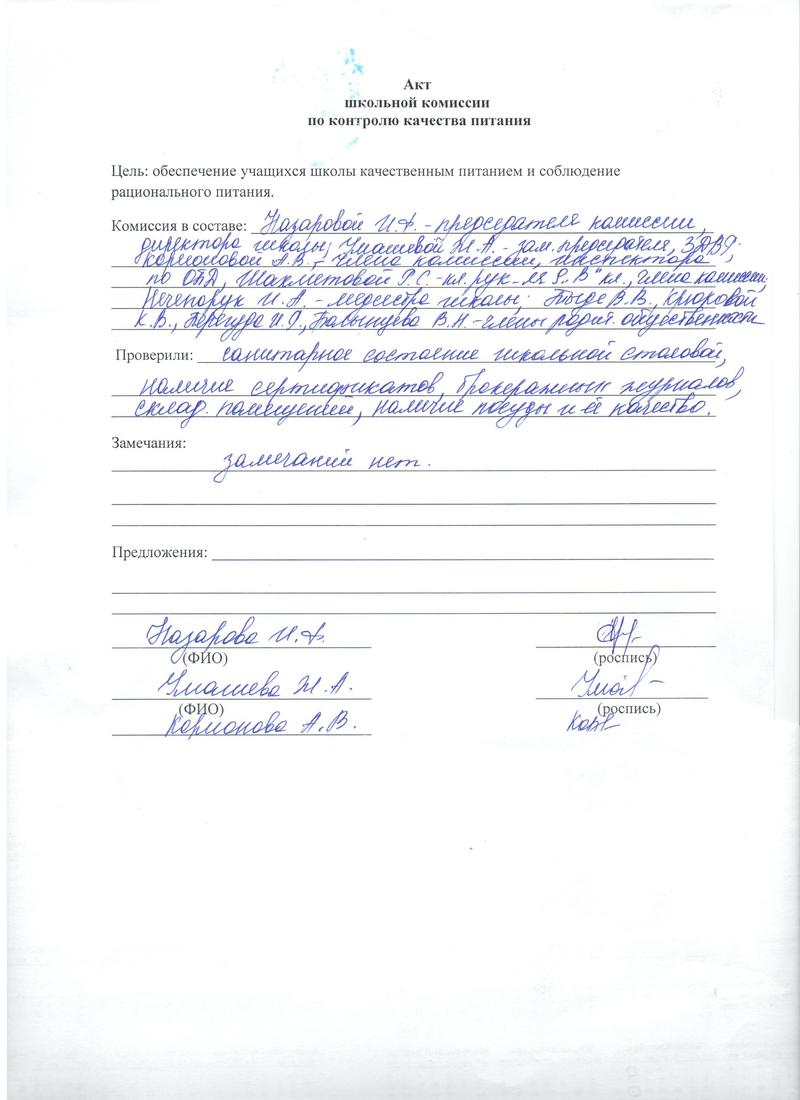 Акт
школьной комиссии
по контролю качества питания
Цель: обеспечение учащихся школы качественным питанием и соблюдение
рационального питания.
Комиссия в составе: Назаровой И.Ф. - председателя комиссии,
директора школы; Умашевой Ж.А. - зам. председателя, ЗДВР;
Корионовой А.В. - члена комиссии, инспектора
по ОПД, Шахметовой Г.С. - кл. рук-ля 8 "В" кл., члена комиссии;
Нечепорук И.А. - медсестра школы; В.В., Крюровой
К.В., Перегуда И.Г., В.Н. - члены родит. общественности
Проверили: санитарное состояние школьной столовой,
наличие сертификатов, бракеражных журналов,
склад. помещений, наличие посуды и её качество.
Замечания:
замечаний нет.
Предложения:
Назарова И.Ф.
(ФИО) (роспись)
Умашева Ж.А.
(ФИО) (роспись)
Корионова А.В.